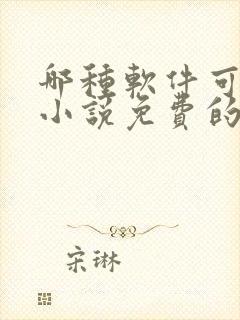 哪種軟件可
小說免費的
宋琳